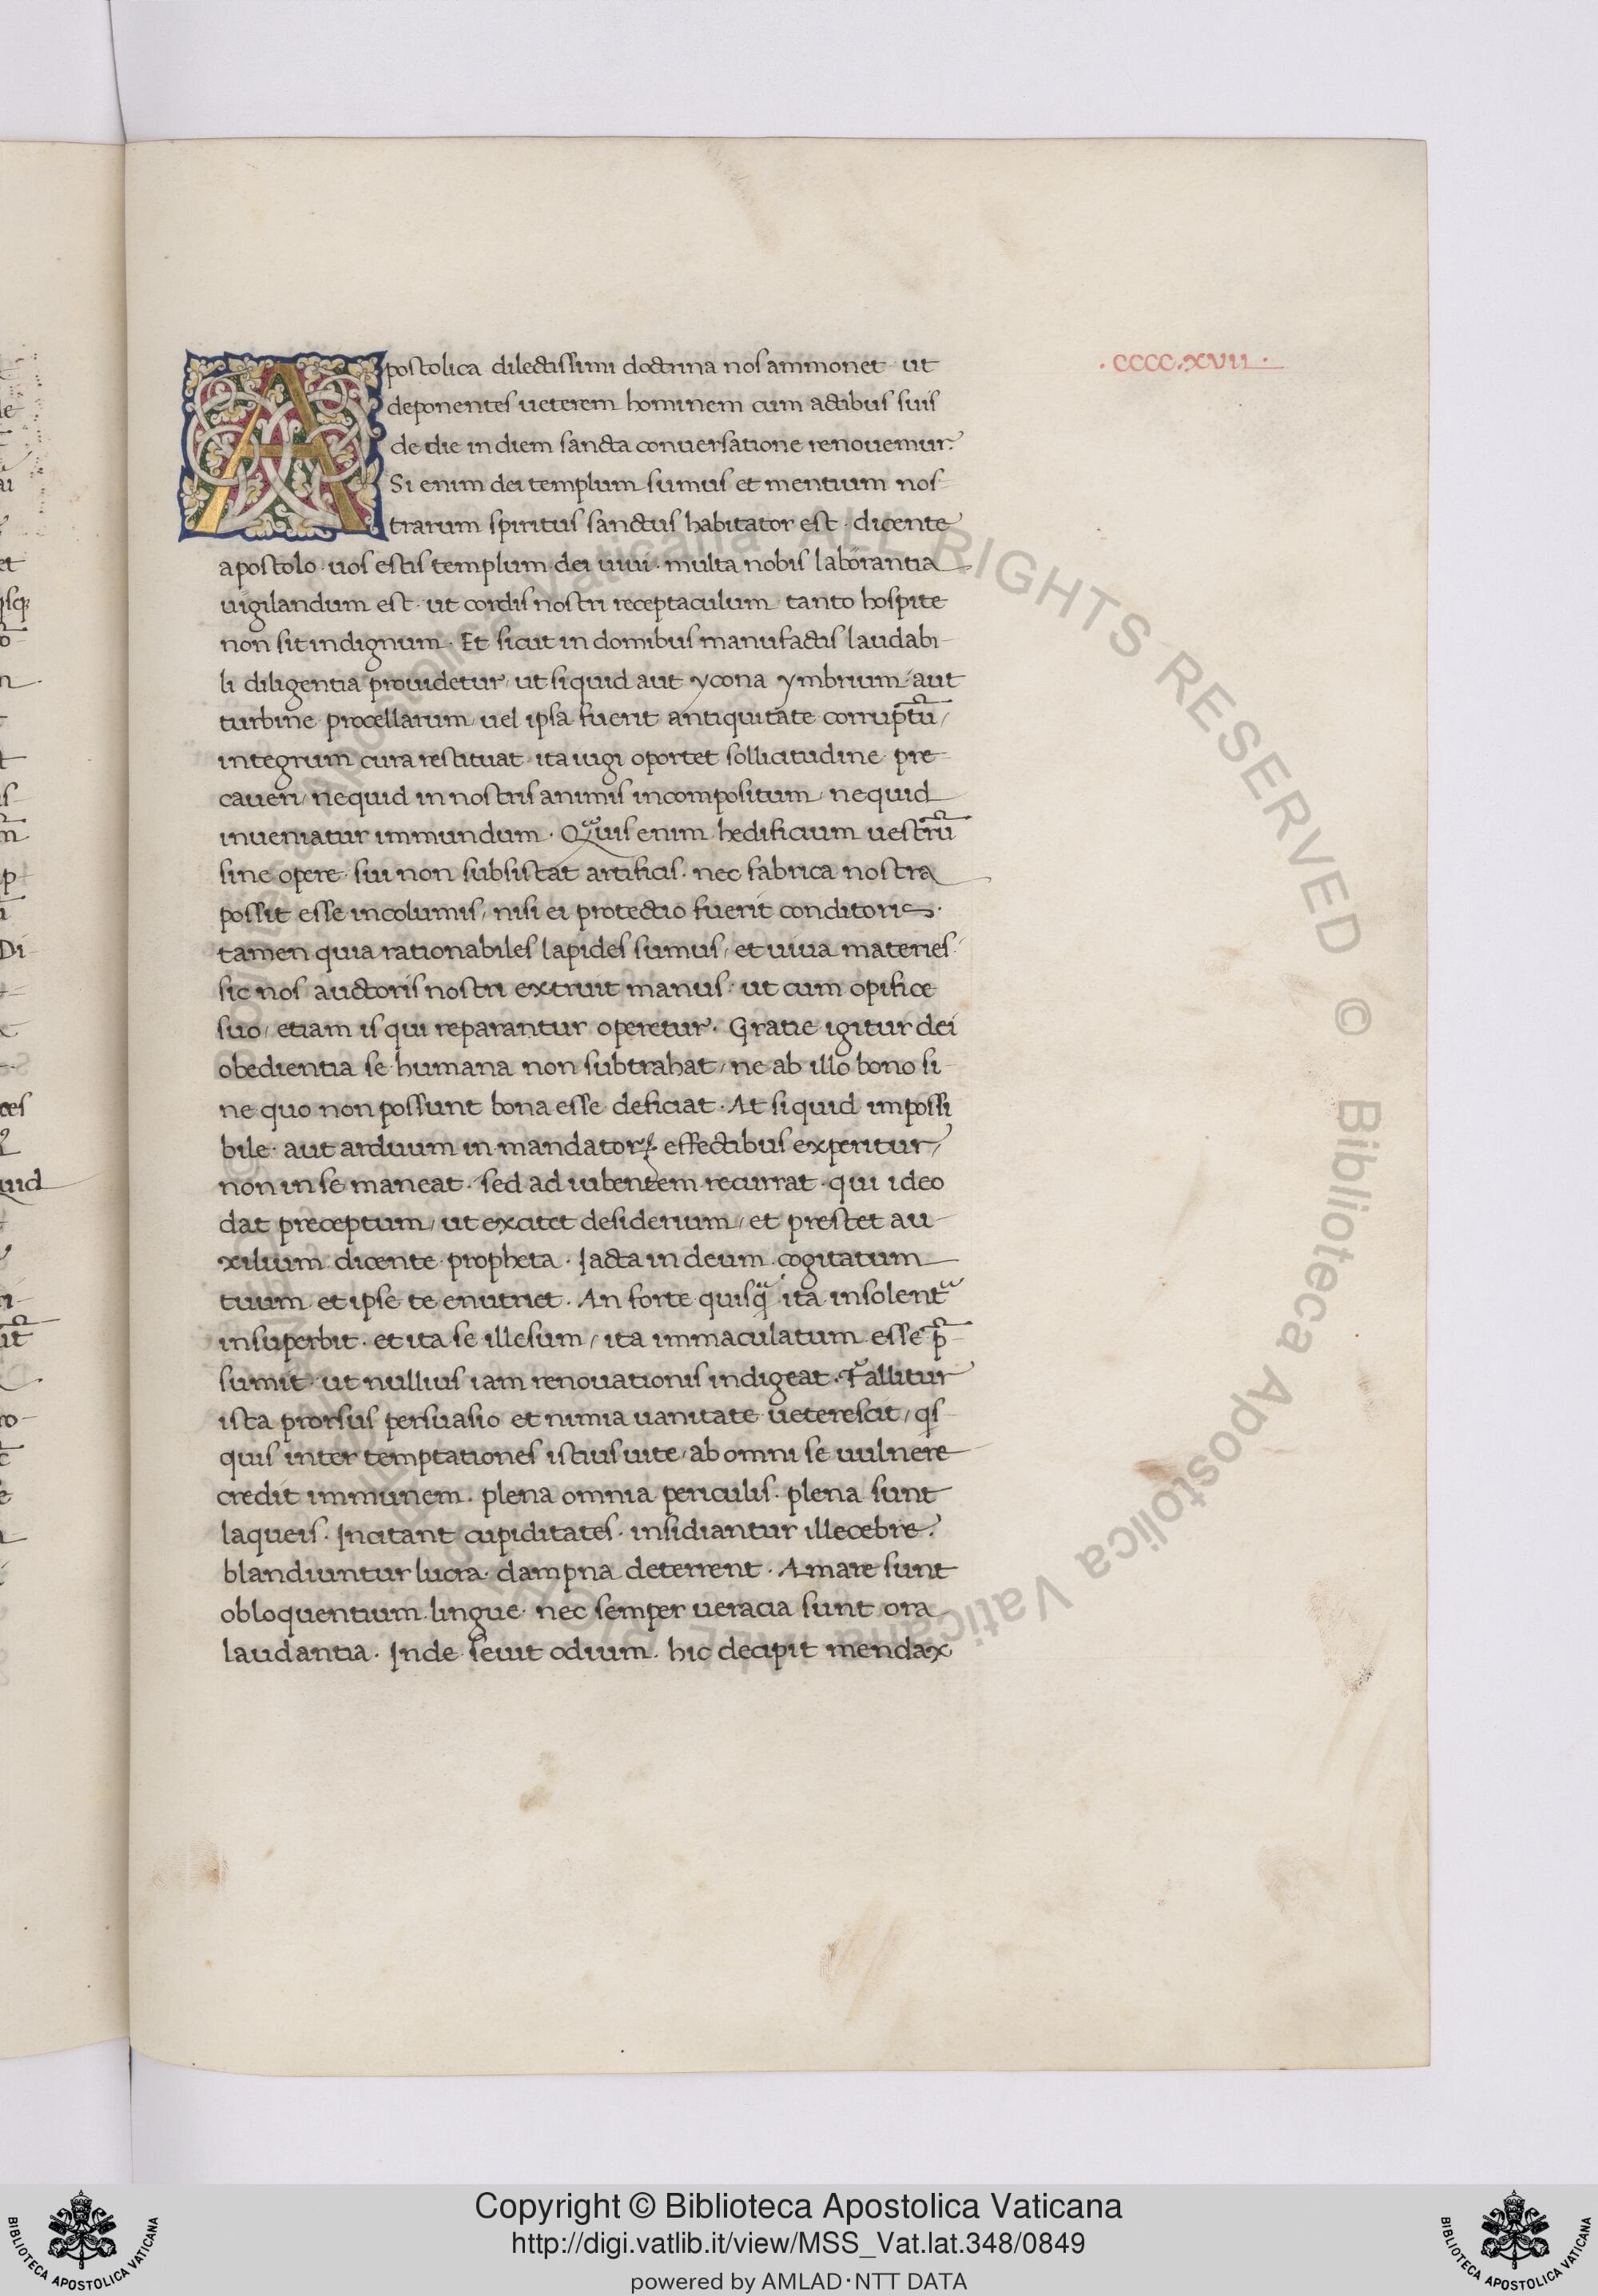 Apostolica dilectissimi doctrina nos ammonet · ut
deponentes ueterem hominem cum actibus suis
de die in diem sancta conuersatione renouemur.
Si enim dei templum sumus et mentium nos-
trarum spiritus sanctus habitator est · dicente
apostolo · uos estis templum dei uiui · multa nobis laborantia
uigilandum est · ut cordis nostri receptaculum tanto hospite
non sit indignum · Et sicut in domibus manufactis laudabi-
li diligentia prouidetur, ut siquid aut ycona ymbrium aut
turbine procellarum uel ipsa fuerit antiquitate corruptū,
integrum cura restituat · ita uigi oportet sollicitudine pre-
caueri, nequid in nostris animis incompositum, nequid
inueniatur immundum · Qᵃuis enim hedificium uestrū
sine opere sui non subsistat artificis · nec fabrica nostra
possit esse incolumis, nisi ei protectio fuerit conditoris ·
tamen quia rationabiles lapides sumus, et uiua materies ·
sic nos auctoris nostri extruit manus · ut cum opifice
suo, etiam is qui reparantur operetur · Gratie igitur dei
obedientia se humana non subtrahat, ne ab illo bono si-
ne quo non possunt bona esse deficiat · At siquid impossi
bile · aut arduum in mandatorꝝ effectibus experitur,
non in se maneat · sed ad iubentem recurrat · qui ideo
dat preceptum, ut excitet desiderium, et prestet au-
xilium dicente propheta · Jacta in deum cogitatum
tuum et ipse te enutriet · An forte quisqᵃ ita insolentᵃ
insuperbit · et ita se illesum, ita immaculatum esse p̄-
sumit · ut nullius iam renouationis indigeat · Fallitur
ista prorsus persuasio et nimia uanitate ueterescit, qs-
quis inter temptationes istius uite, ab omni se uulnere
credit immunem · plena omnia periculis · plena sunt
laqueis · Incitant cupiditates · insidiantur illecebre ·
blandiuntur lucra · dampna deterrent · Amare sunt
obloquentium lingue · nec semper ueracia sunt ora
laudantia · Inde seuit odium · hic decipit mendax
· CCCC · XVII ·
© Biblioteca Apostolica Vaticana ALL RIGHTS RESERVED © Biblioteca Apostolica Vaticana ALL RIGHTS RESERVED
Copyright © Biblioteca Apostolica Vaticana
http://digi.vatlib.it/view/MSS_Vat.lat.348/0849
powered by AMLAD·NTT DATA
BIBLIOTECA APOSTOLICA VATICANA
BIBLIOTECA APOSTOLICA VATICANA